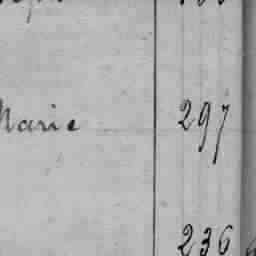 Marie 297
236